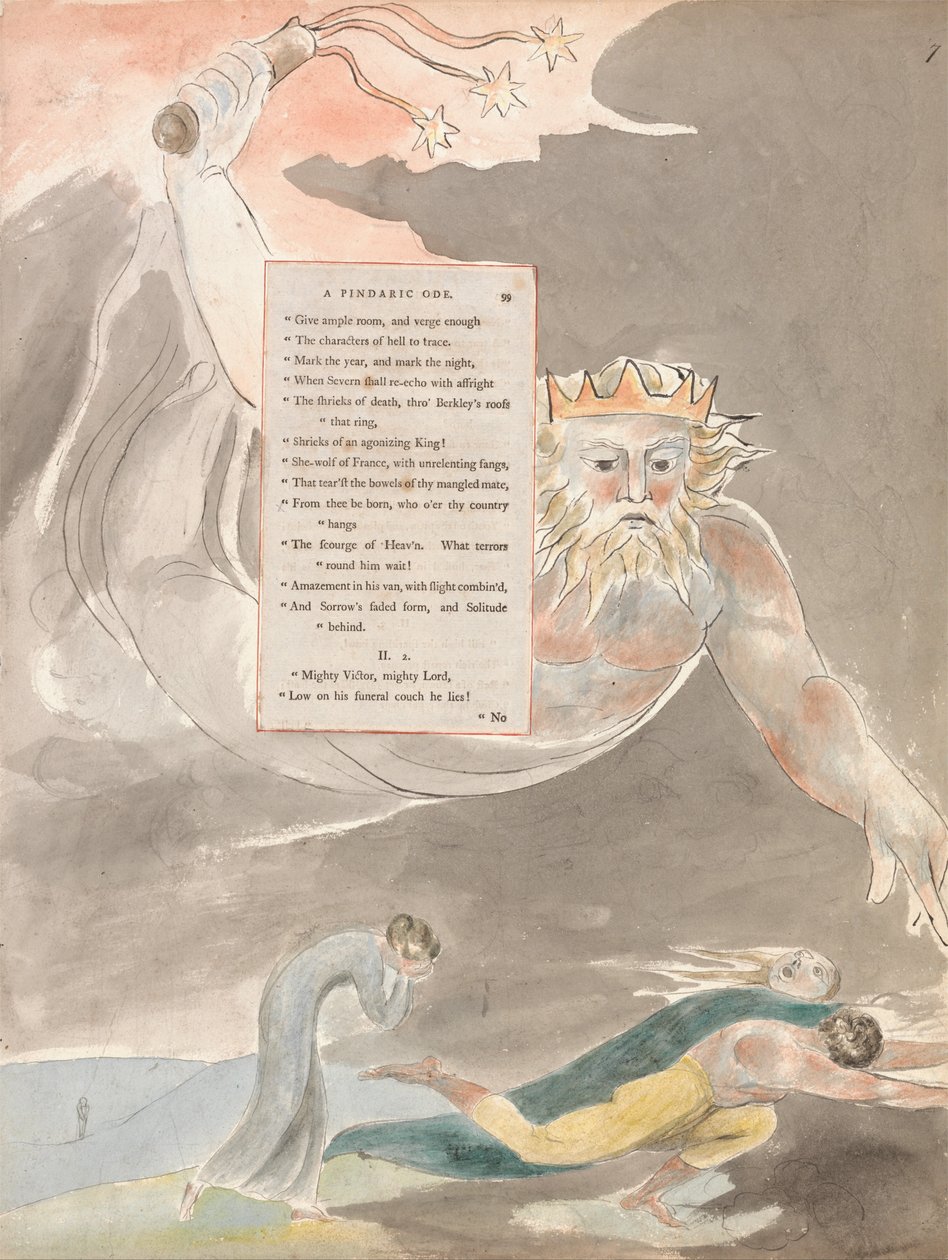 7
A PINDARIC ODE. 99
“ Give ample room, and verge enough
“ The characters of hell to trace.
“ Mark the year, and mark the night,
“ When Severn ſhall re-echo with affright
“ The ſhrieks of death, thro' Berkley's roofs
“ that ring,
“ Shrieks of an agonizing King!
“ She-wolf of France, with unrelenting fangs,
“ That tear'ſt the bowels of thy mangled mate,
“ From thee be born, who o'er thy country
“ hangs
“ The ſcourge of Heav'n. What terrors
“ round him wait!
“ Amazement in his van, with flight combin'd,
“ And Sorrow's faded form, and Solitude
“ behind.
II. 2.
“ Mighty Victor, mighty Lord,
“ Low on his funeral couch he lies!
“ No